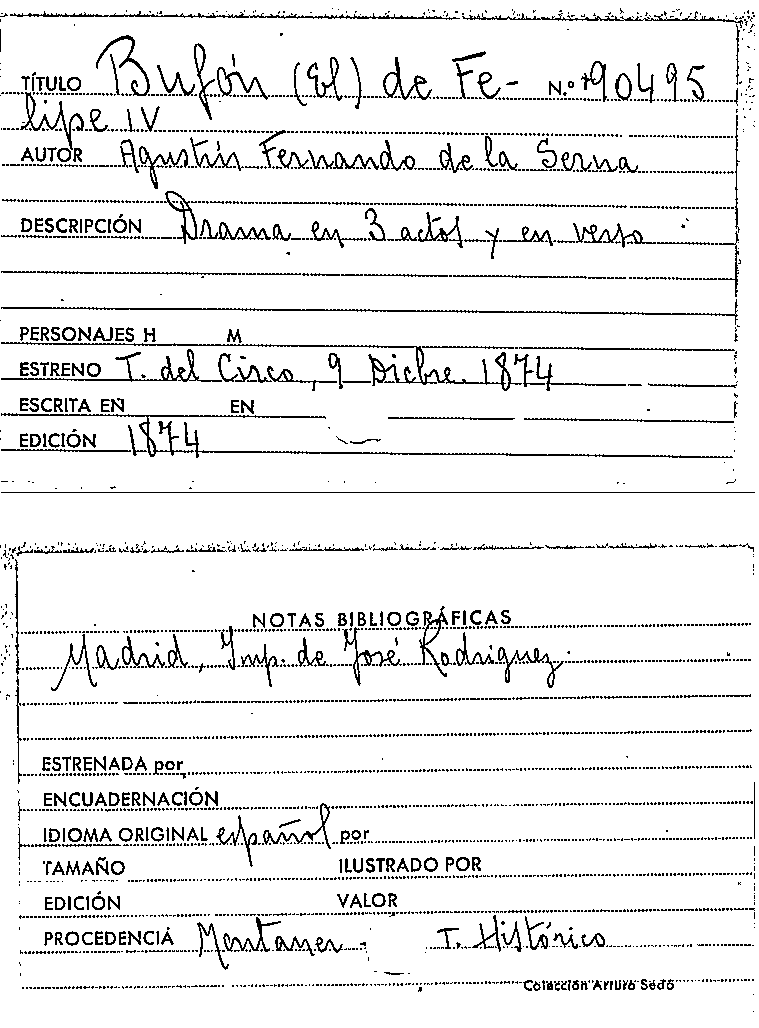 TÍTULO Bufón (El) de Fe- N.º 90495
lipe IV
AUTOR Agustín Fernando de la Serna
DESCRIPCIÓN Drama en 3 actos y en verso
PERSONAJES H M
ESTRENO T. del Circo, 9 Dicbre. 1874
ESCRITA EN EN
EDICIÓN 1874
NOTAS BIBLIOGRÁFICAS
Madrid, Imp. de José Rodriguez.
ESTRENADA por
ENCUADERNACIÓN
IDIOMA ORIGINAL español por
TAMAÑO ILUSTRADO POR
EDICIÓN VALOR
PROCEDENCIA Montaner - T. Histórico
Colección Arturo Sedó